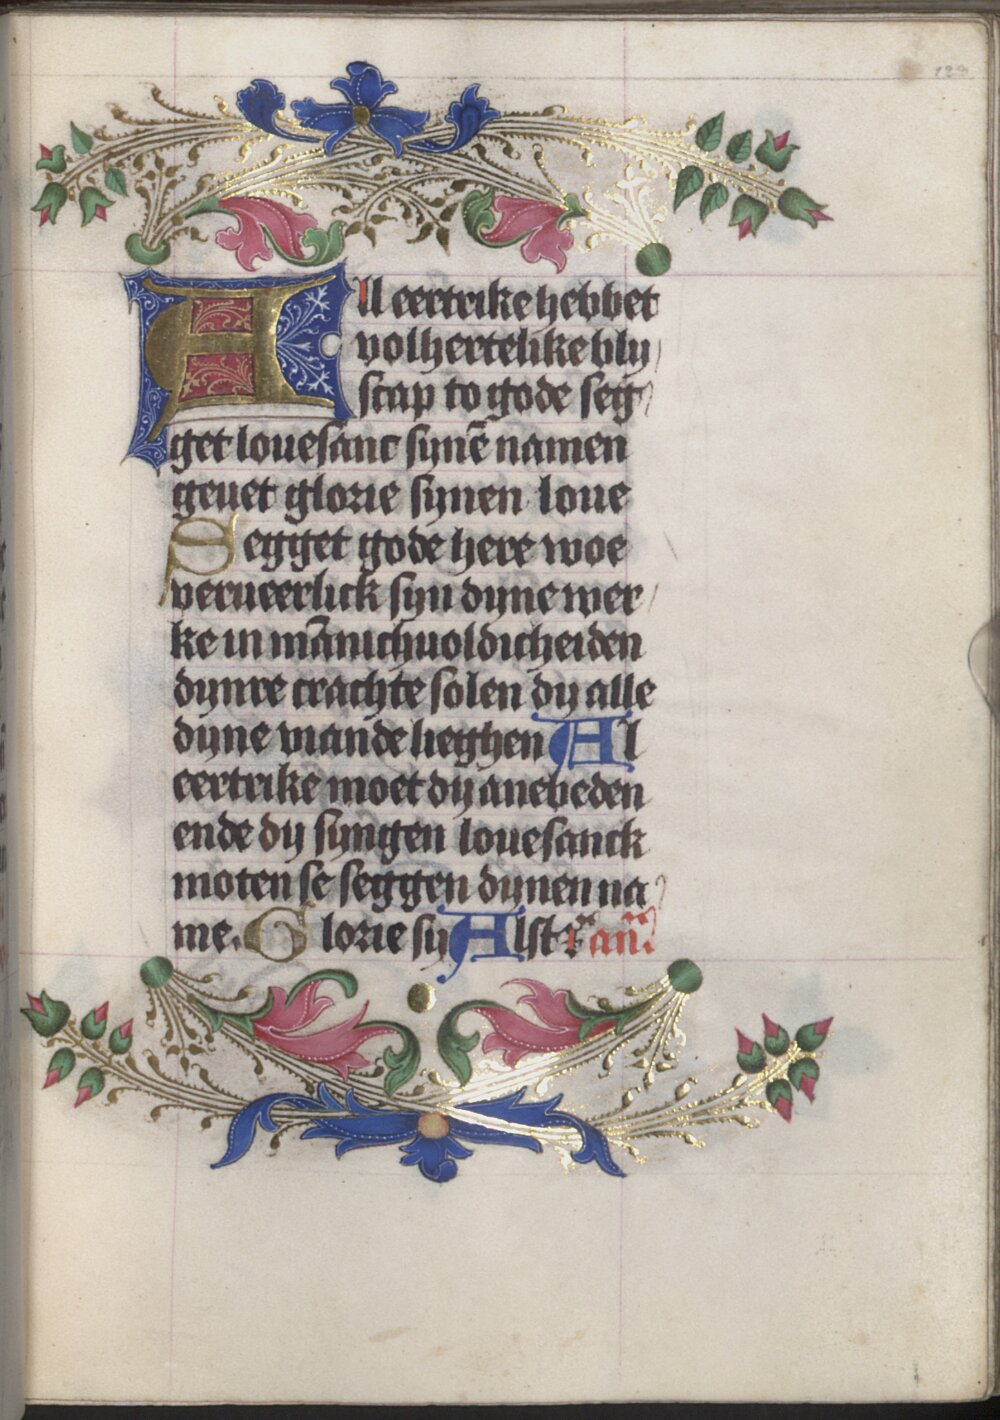 All eertrike hebbet
volhertelike bly
scap to gode seg
get louesanc synē namen
geuet glorie synen loue
Segget gode here woe
verueerlick syn dyne wer
ke in mānichuoldicheiden
dynre crachte solen dy alle
dyne viande lieghen Al
eertrike moet dy anebeden
ende dy syngen louesanck
moten se seggen dynen na
me. Glorie sy Alst